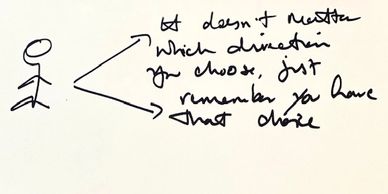 It doesn't matter
which direction
you choose, just
remember you have
that choice